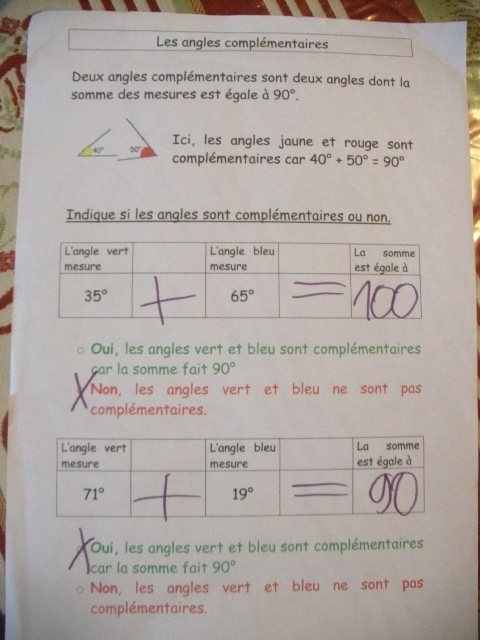 Les angles complémentaires
Deux angles complémentaires sont deux angles dont la
somme des mesures est égale à 90°.
40° 50°
Ici, les angles jaune et rouge sont
complémentaires car 40° + 50° = 90°
Indique si les angles sont complémentaires ou non.
L'angle vert L'angle bleu La somme
mesure mesure est égale à
35° + 65° = 100
Oui, les angles vert et bleu sont complémentaires
car la somme fait 90°
X Non, les angles vert et bleu ne sont pas
complémentaires.
L'angle vert L'angle bleu La somme
mesure mesure est égale à
71° + 19° = 90
X Oui, les angles vert et bleu sont complémentaires
car la somme fait 90°
Non, les angles vert et bleu ne sont pas
complémentaires.